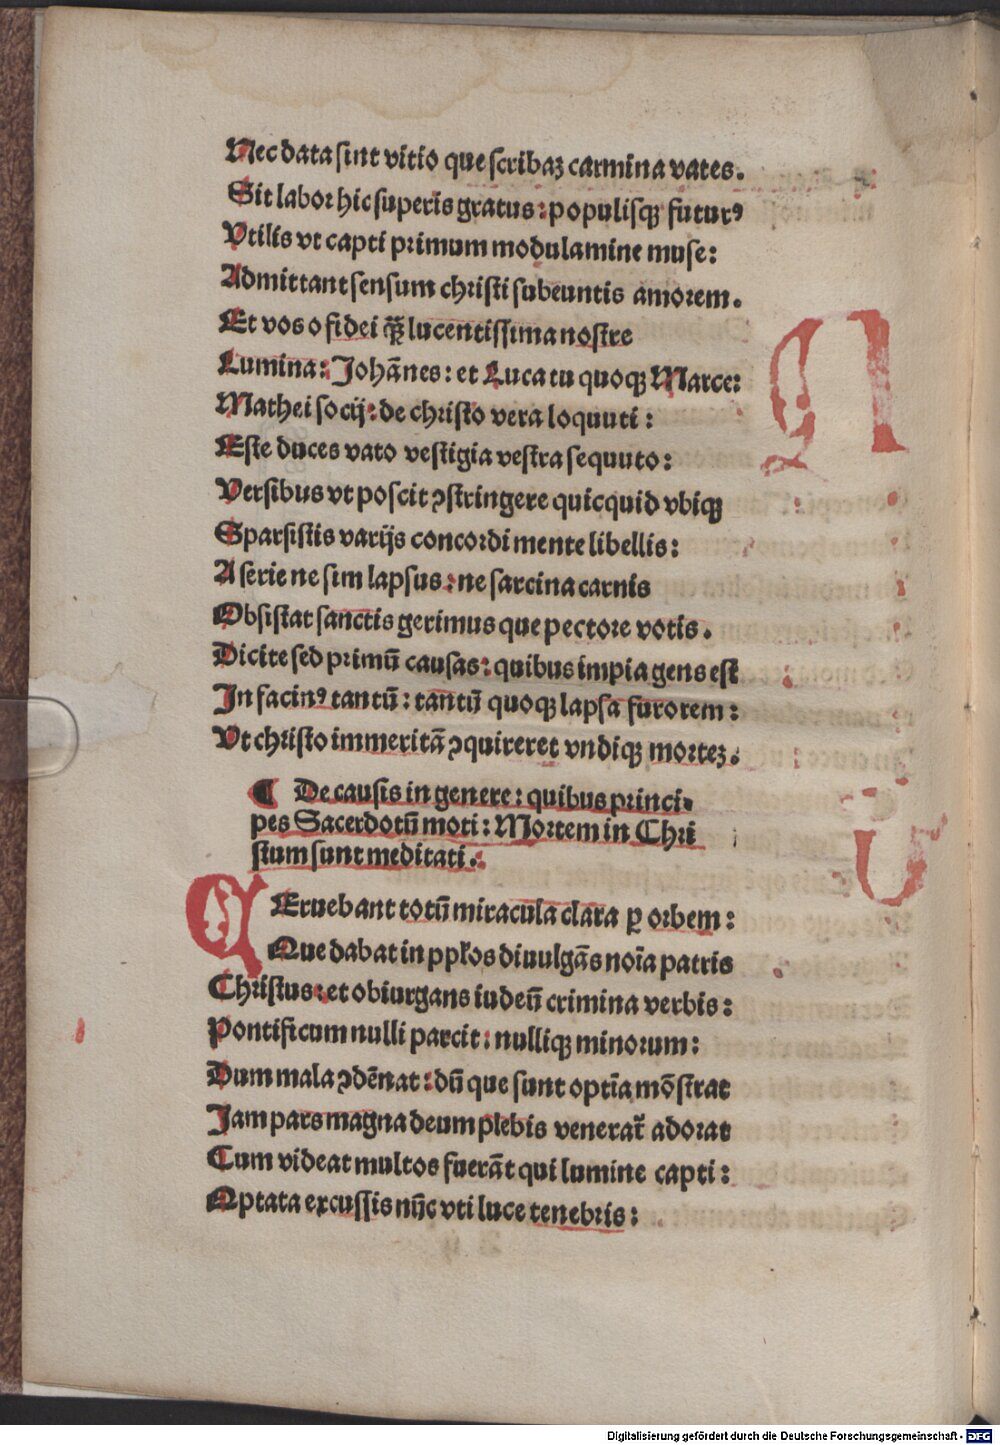 Nec data sint vitio que scribaꝫ carmina vates.
Sit labor hic superis gratus: populisqꝫ futurꝰ
Vtilis vt capti primum modulamine muse:
Admittant sensum christi subeuntis amorem.
Et vos o fidei lucentissima nostre
Lumina: Johānes: et Luca tu quoqꝫ Marce:
Mathei socij: de christo vera loquuti:
Este duces vato vestigia vestra sequuto:
Versibus vt poscit ꝯstringere quicquid vbiqꝫ
Sparsistis varijs concordi mente libellis:
A serie ne sim lapsus: ne sarcina carnis
Obsistat sanctis gerimus que pectore votis.
Dicite sed primū causas: quibus impia gens est
In facinꝰ tantū: tantū quoqꝫ lapsa furorem:
Vt christo immeritā ꝯquireret vndiqꝫ morteꝫ.
¶ De causis in genere: quibus princi-
pes Sacerdotū moti: Mortem in Chri
stum sunt meditati.
QEruebant totū miracula clara ꝑ orbem:
Que dabat in ppłos diuulgās noīa patris
Christus: et obiurgans iudeū crimina verbis:
Pontificum nulli parcit: nulliqꝫ minorum:
Dum mala ꝯdēnat: dū que sunt optīa mōstrat
Jam pars magna deum plebis venerat̄ adorat
Cum videat multos fuerāt qui lumine capti:
Optata excussis nūc vti luce tenebris:
Digitalisierung gefördert durch die Deutsche Forschungsgemeinschaft - DFG